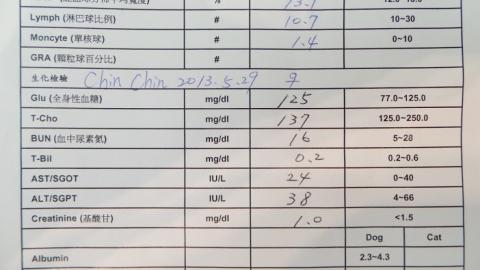 % 13.1
Lymph (淋巴球比例) # 10.7 10~30
Moncyte (單核球) # 1.4 0~10
GRA (顆粒球百分比) #
生化檢驗 Chin Chin 2013.5.29 ♀
Glu (全身性血糖) mg/dl 125 77.0~125.0
T-Cho mg/dl 137 125.0~250.0
BUN (血中尿素氮) mg/dl 16 5~28
T-Bil mg/dl 0.2 0.2~0.6
AST/SGOT IU/L 24 0~40
ALT/SGPT IU/L 38 4~66
Creatinine (基酸甘) mg/dl 1.0 <1.5
Dog Cat
Albumin 2.3~4.3